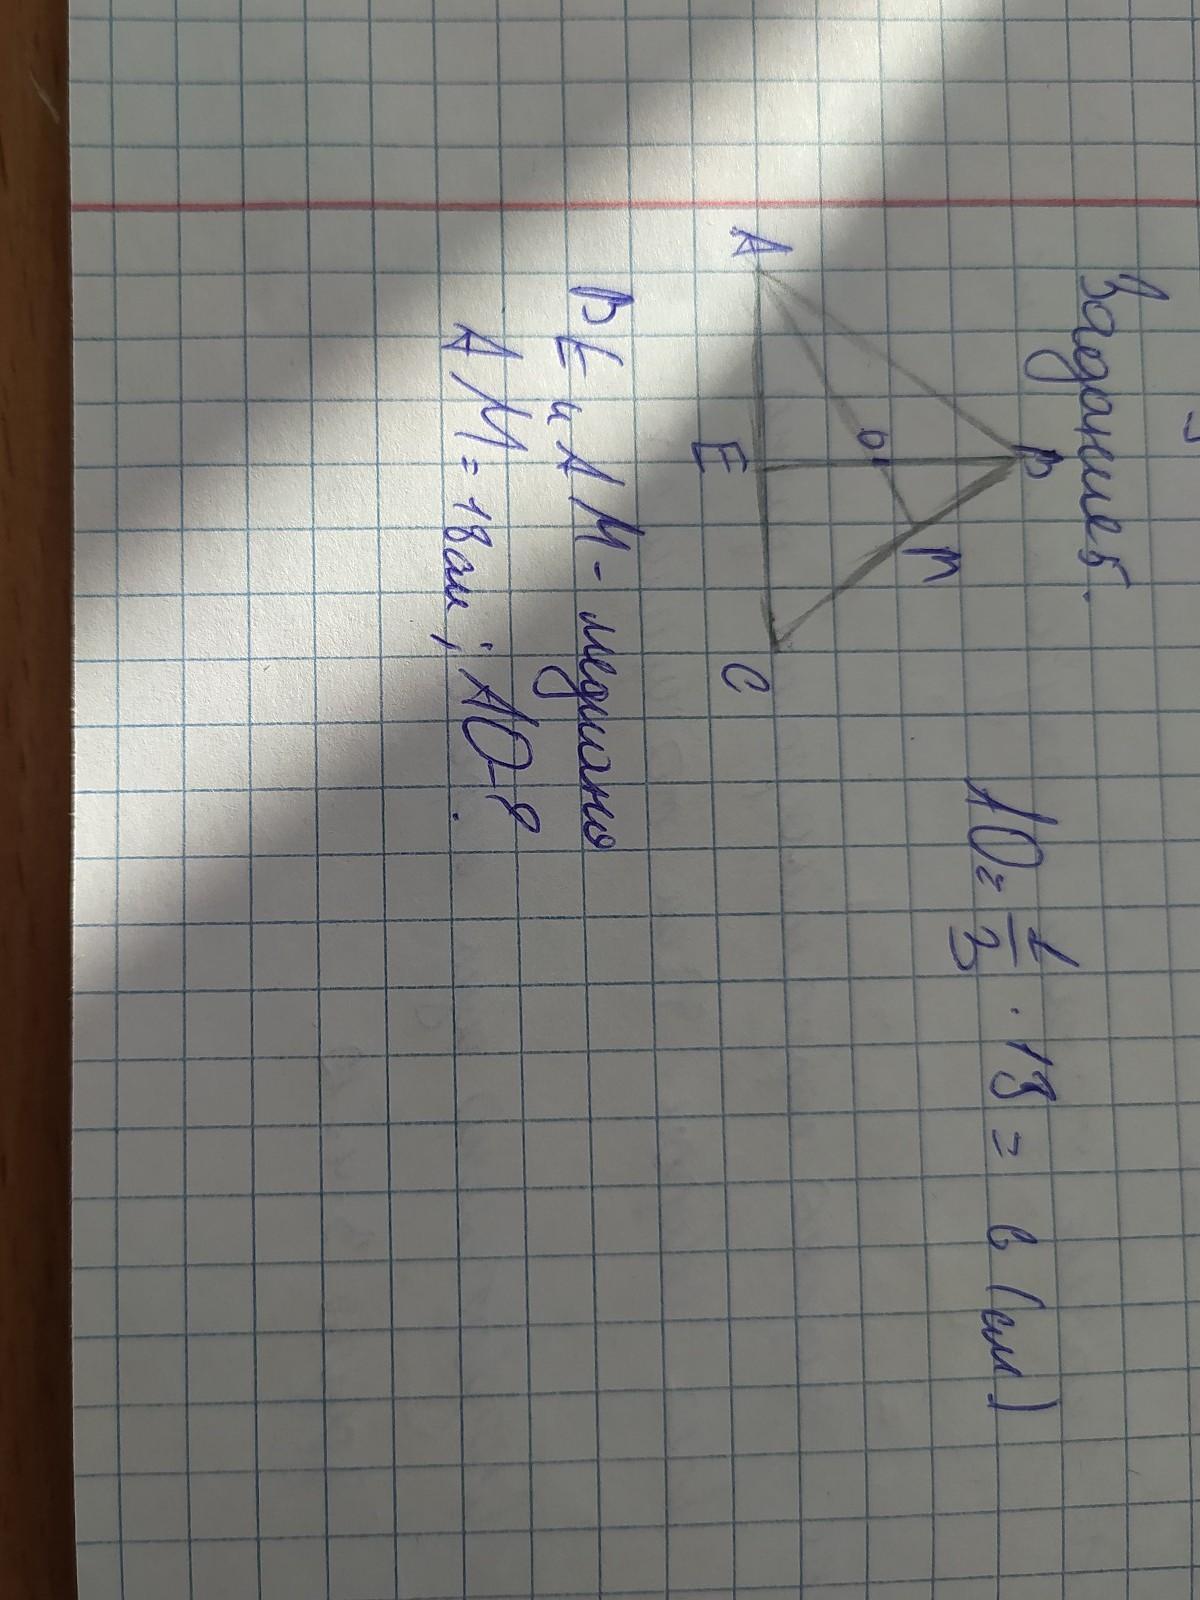 Задание 5.
B
M
O
A
E
C
AO = 1/3 · 18 = 6 (см)
BE и AM - медианы
AM = 18 см; AO-?